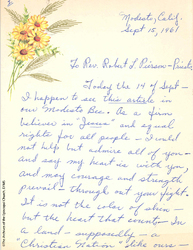 Modesto, Calif.
Sept 15, 1961
To Rev. Robert L. Pierson - Priest,
Today the 14 of Sept -
I happen to see this article in
our Modesto Bee. As a firm
believer in "Jesus" and equal
rights for all people - I could
not help but admire all of you -
and say my heart is with you,
and may courage and strength
prevail - through out your fight.
It is not the color of skin -
but the heart that counts - In
a land - supposedly - a
"Christian Nation" like ours